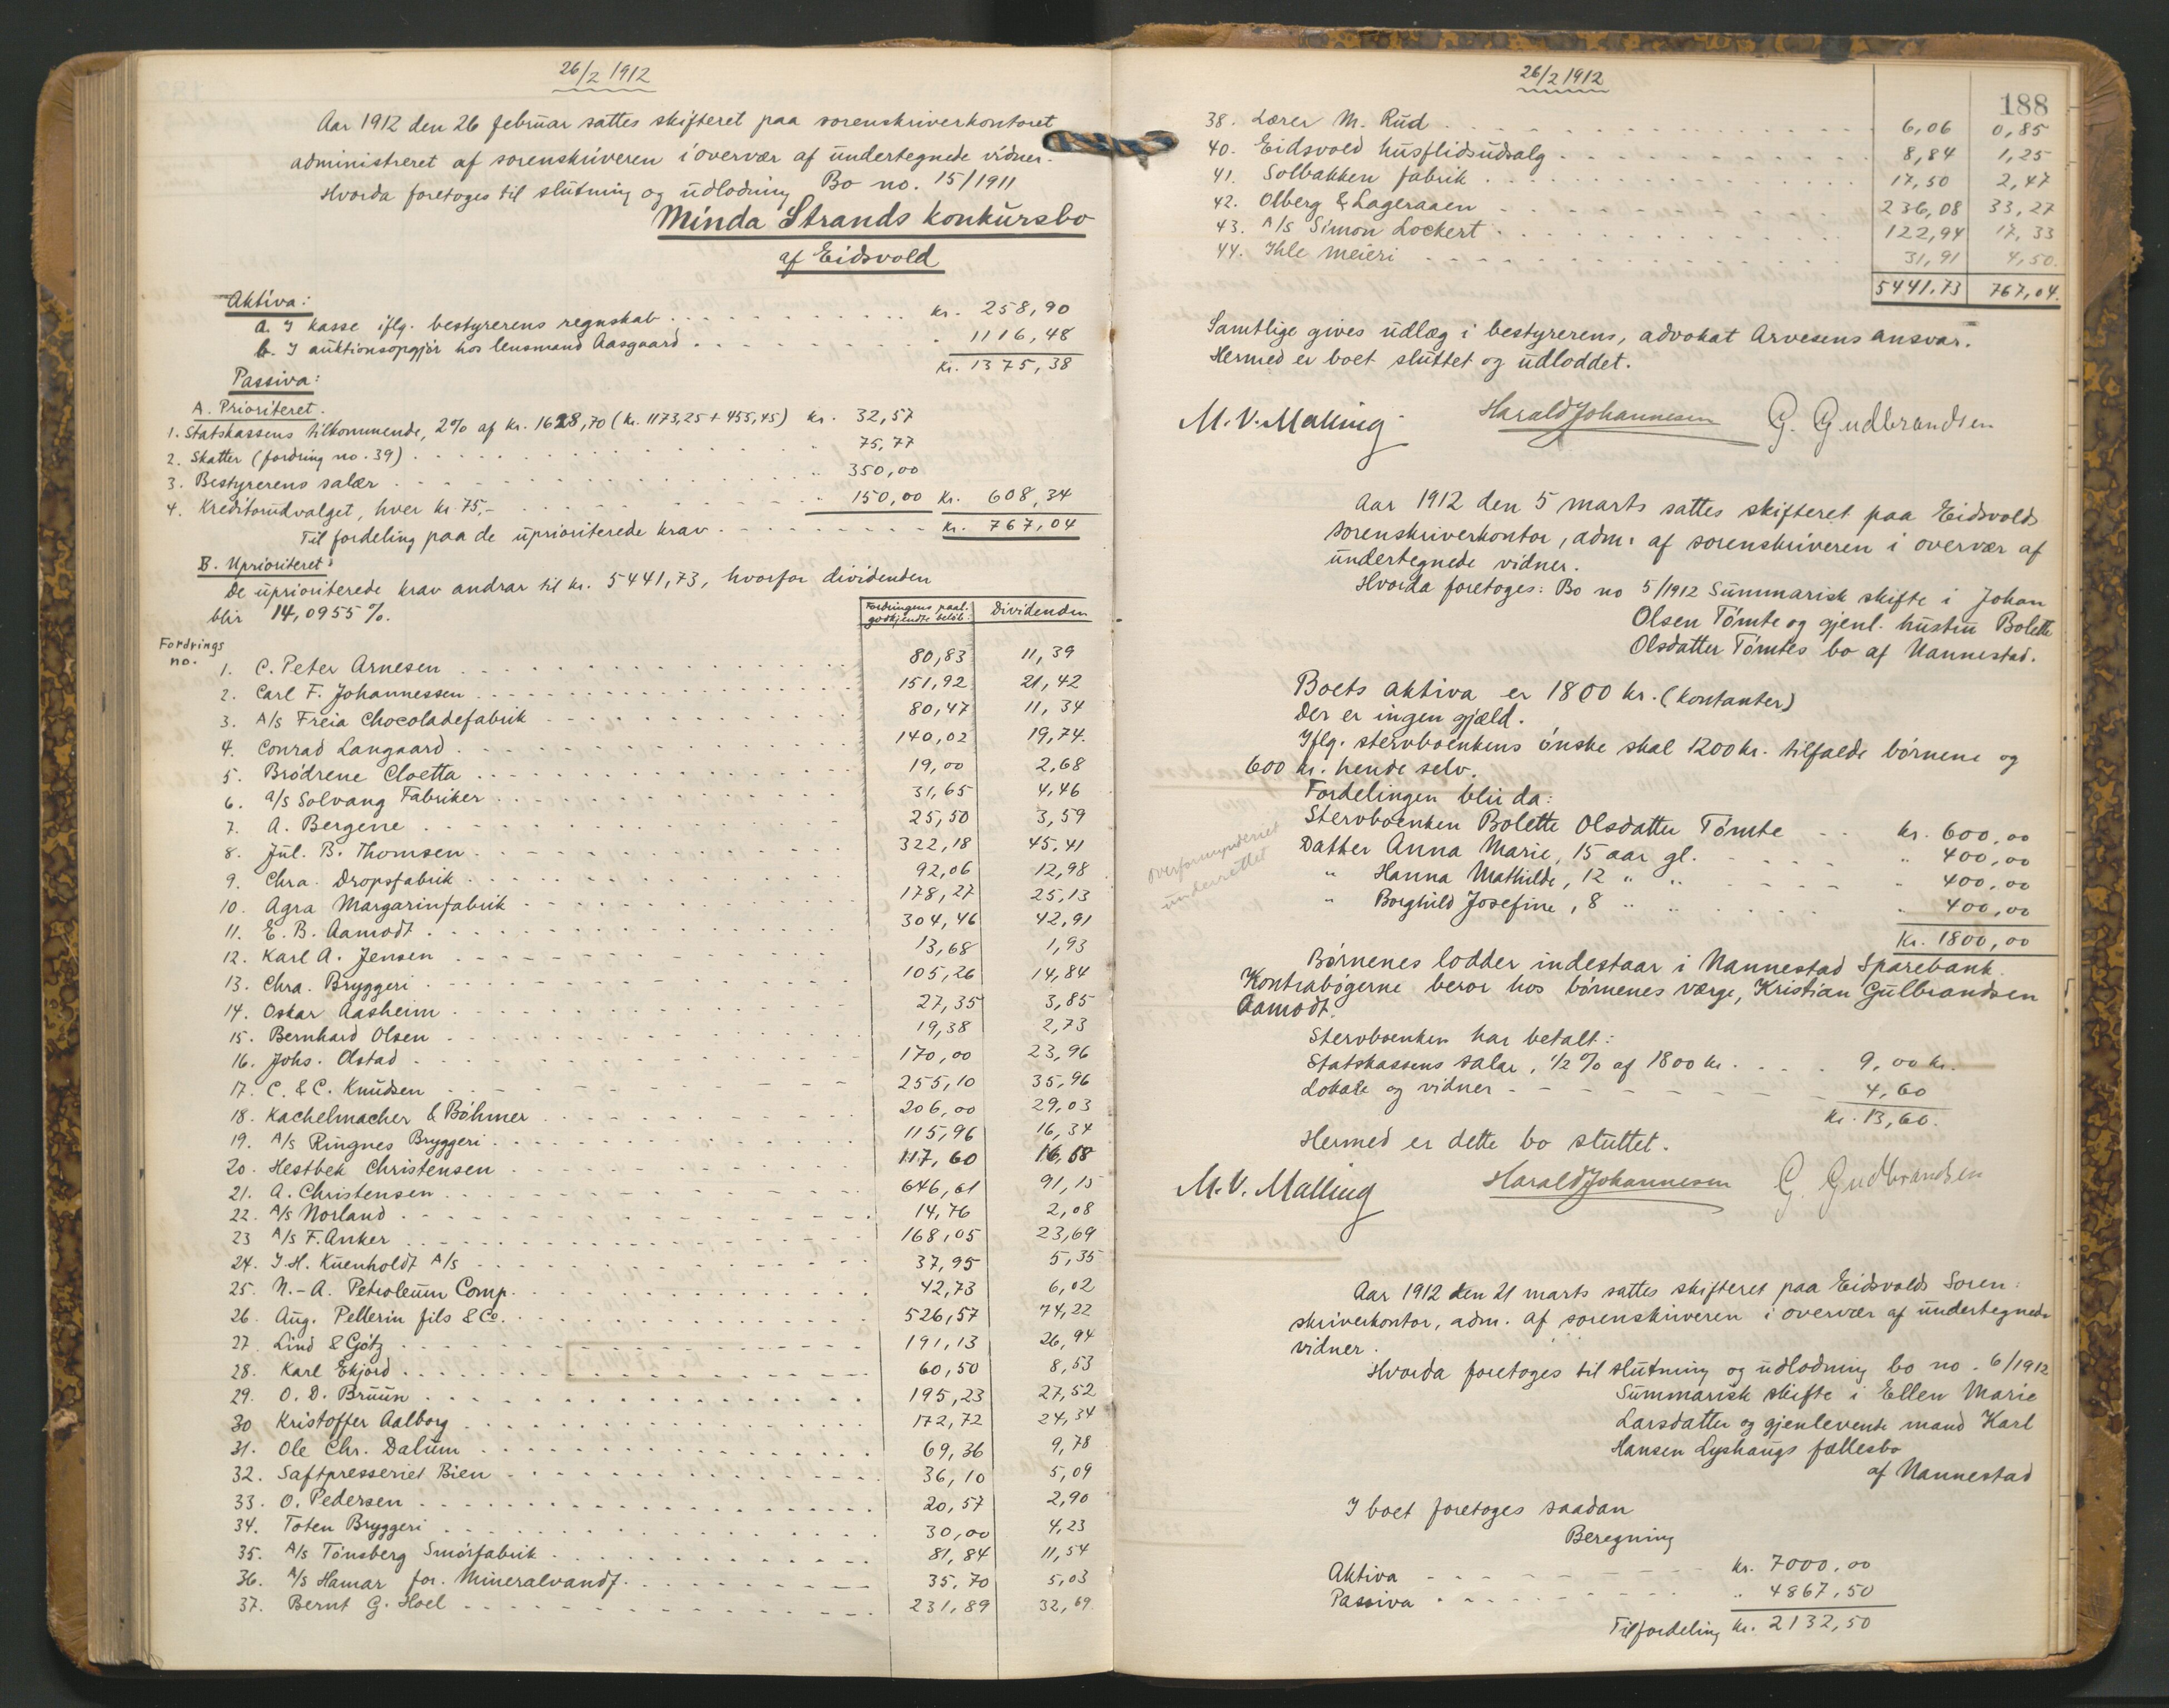 26/2 1912
Aar 1912 den 26 februar sattes skifteret paa sorenskriverkontoret
administreret af sorenskriveren i overvær af undertegnede vidner.
Hvorda foretoges til slutning og udlodning Bo no. 15/1911
Minda Strands konkursbo
af Eidsvold
Aktiva:
a. I kasse iflg. bestyrerens regnskab . . . kr. 258,90
b. I auktionsopgjør hos lensmand Aasgaard . . . " 1116,48
kr. 1375,38
Passiva:
A. Prioriteret.
1. Statskassens tilkommende, 2% af kr. 1628,70 (kr. 1173,25 + 455,45) kr. 32,57
2. Skatter (fordring no. 39) . . . " 75,77
3. Bestyrerens salær . . . " 350,00
4. Kreditorudvalget, hver kr. 75,- . . . " 150,00 kr. 608,34
Til fordeling paa de uprioriterede krav . . . kr. 767,04
B. Uprioriteret:
De uprioriterede krav andrar til kr. 5441,73, hvorfor dividenden
blir 14,0955 %.
Fordrings no. Fordringens paal. godkjendte beløb. Dividenden
1. C. Peter Arnesen . . . 80,83 11,39
2. Carl F. Johannessen . . . 151,92 21,42
3. A/s Freia Chocoladefabrik . . . 80,47 11,34
4. Conrad Langaard . . . 140,02 19,74.
5. Brødrene Cloetta . . . 19,00 2,68
6. a/s Solvang Fabriker . . . 31,65 4,46
7. A. Bergene . . . 25,50 3,59
8. Jul. B. Thomsen . . . 322,18 45,41
9. Chra. Dropsfabrik . . . 92,06 12,98
10. Agra Margarinfabrik . . . 178,27 25,13
11. E. B. Aamodt . . . 304,46 42,91
12. Karl A. Jensen . . . 13,68 1,93
13. Chra. Bryggeri . . . 105,26 14,84
14. Oskar Aasheim . . . 27,35 3,85
15. Bernhard Olsen . . . 19,38 2,73
16. Johs. Olstad . . . 170,00 23,96
17. C. & C. Knudsen . . . 255,10 35,96
18. Kachelmacher & Bøhmer . . . 206,00 29,03
19. A/s Ringnes Bryggeri . . . 115,96 16,34
20. Hestbek Christensen . . . 117,60 16,68
21. A. Christensen . . . 646,61 91,15
22. A/s Norland . . . 14,76 2,08
23 A/s F. Anker . . . 168,05 23,69
24. J. H. Kuenholdt A/s . . . 37,95 5,35
25. N.-A. Petroleum Comp. . . . 42,73 6,02
26. Aug. Pellerin fils & Co. . . . 526,57 74,22
27. Lind & Götz . . . 191,13 26,94
28. Karl Ekjord . . . 60,50 8,53
29. O. D. Bruun . . . 195,23 27,52
30 Kristoffer Aalborg . . . 172,72 24,34
31. Ole Chr. Dalum . . . 69,36 9,78
32. Saftpresseriet Bien . . . 36,10 5,09
33. O. Pedersen . . . 20,57 2,90
34. Toten Bryggeri . . . 30,00 4,23
35. A/s Tønsberg Smørfabrik . . . 81,84 11,54
36. A/s Hamar for. Mineralvandf. . . . 35,70 5,03
37. Bernt G. Hoel . . . 231,89 32,69.
26/2 1912
188
38. Lærer M. Rud . . . 6,06 0,85
40. Eidsvold husflidsudsalg . . . 8,84 1,25
41. Solbakken fabrik . . . 17,50 2,47
42. Olberg & Lageraaen . . . 236,08 33,27
43. A/s Simon Lockert . . . 122,94 17,33
44. Ihle meieri . . . 31,91 4,50.
5441,73 767,04.
Samtlige gives udlæg i bestyrerens, advokat Arvesens ansvar.
Hermed er boet sluttet og udloddet.
M. V. Malling Harald Johannesen G. Gudbrandsen
Aar 1912 den 5 marts sattes skifteret paa Eidsvolds
sorenskriverkontor, adm. af sorenskriveren i overvær af
undertegnede vidner.
Hvorda foretoges: Bo no 5/1912 Summarisk skifte i Johan
Olsen Tømte og gjenl. hustru Bolette
Olsdatter Tømtes bo af Nannestad.
Boets aktiva er 1800 kr. (kontanter)
Der er ingen gjæld.
Iflg. stervboenkens ønske skal 1200 kr. tilfalde børnene og
600 kr. hende selv.
Fordelingen blir da:
Stervboenken Bolette Olsdatter Tømte . . kr. 600,00
overformynderiet
underrettet
Datter Anna Marie, 15 aar gl. . . . " 400,00
" Hanna Mathilde, 12 " " . . . " 400,00
" Borghild Josefine, 8 " " . . . " 400,00
kr. 1800,00
Børnenes lodder indestaar i Nannestad Sparebank.
Kontrabøgerne beror hos børnenes værge, Kristian Gulbrandsen
Aamodt.
Stervboenken har betalt:
Statskassens salær, 1/2 % af 1800 kr. . . . 9,00 kr.
Lokale og vidner . . . 4,60
kr. 13,60.
Hermed er dette bo sluttet.
M. V. Malling Harald Johannesen G. Gudbrandsen
Aar 1912 den 21 marts sattes skifteret paa Eidsvolds Soren-
skriverkontor, adm. af sorenskriveren i overvær af undertegnede
vidner.
Hvorda foretoges til slutning og udlodning bo no. 6/1912
Summarisk skifte i Ellen Marie
Larsdatter og gjenlevende mand Karl
Hansen Lyshaugs fællesbo
af Nannestad
I boet foretoges saadan
Beregning
Aktiva . . . kr. 7000,00
Passiva . . . " 4867,50
Til fordeling kr. 2132,50